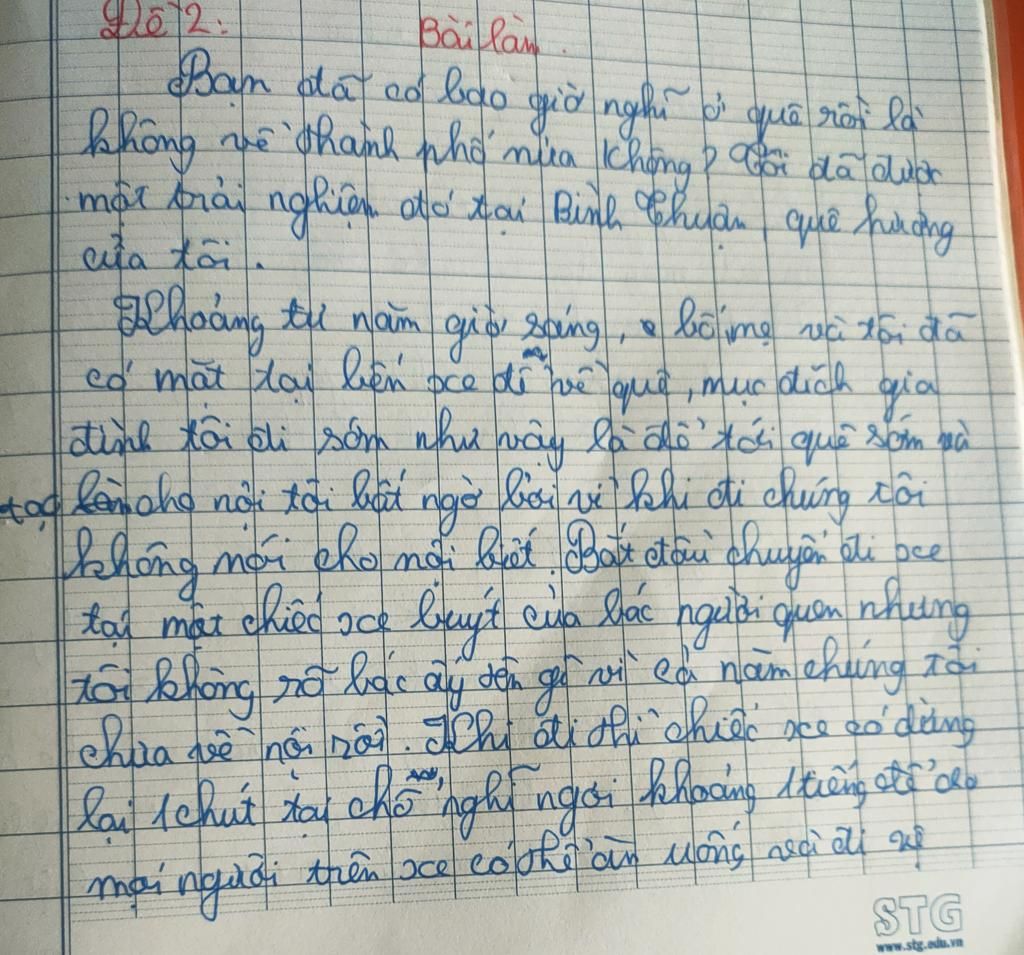 Đề 2:
Bài làm.
Bạn đã có bao giờ nghĩ ở quê rồi là
không về thành phố nữa không? Tôi đã được
một trải nghiệm đó tại Bình Thuận, quê hương
của tôi.
Khoảng tư năm giờ sáng, bố mẹ và tôi đã
có mặt tại bến xe để về quê, mục đích gia
đình tôi đi sớm như vậy là để tới quê sớm và
tạo cho nội tôi bất ngờ bởi vì khi đi chúng tôi
không nói cho nội biết. Bắt đầu chuyến đi xe
tại một chiếc xe buýt của bác người quen nhưng
tôi không rõ bác ấy tên gì vì cả năm chúng tôi
chưa về nội rồi. Khi đi thì chiếc xe có dừng
lại 1 chút tại chỗ nghỉ ngơi khoảng 1 tiếng để cho
mọi người trên xe có thể ăn uống và đi vệ
STG
www.stg.edu.vn